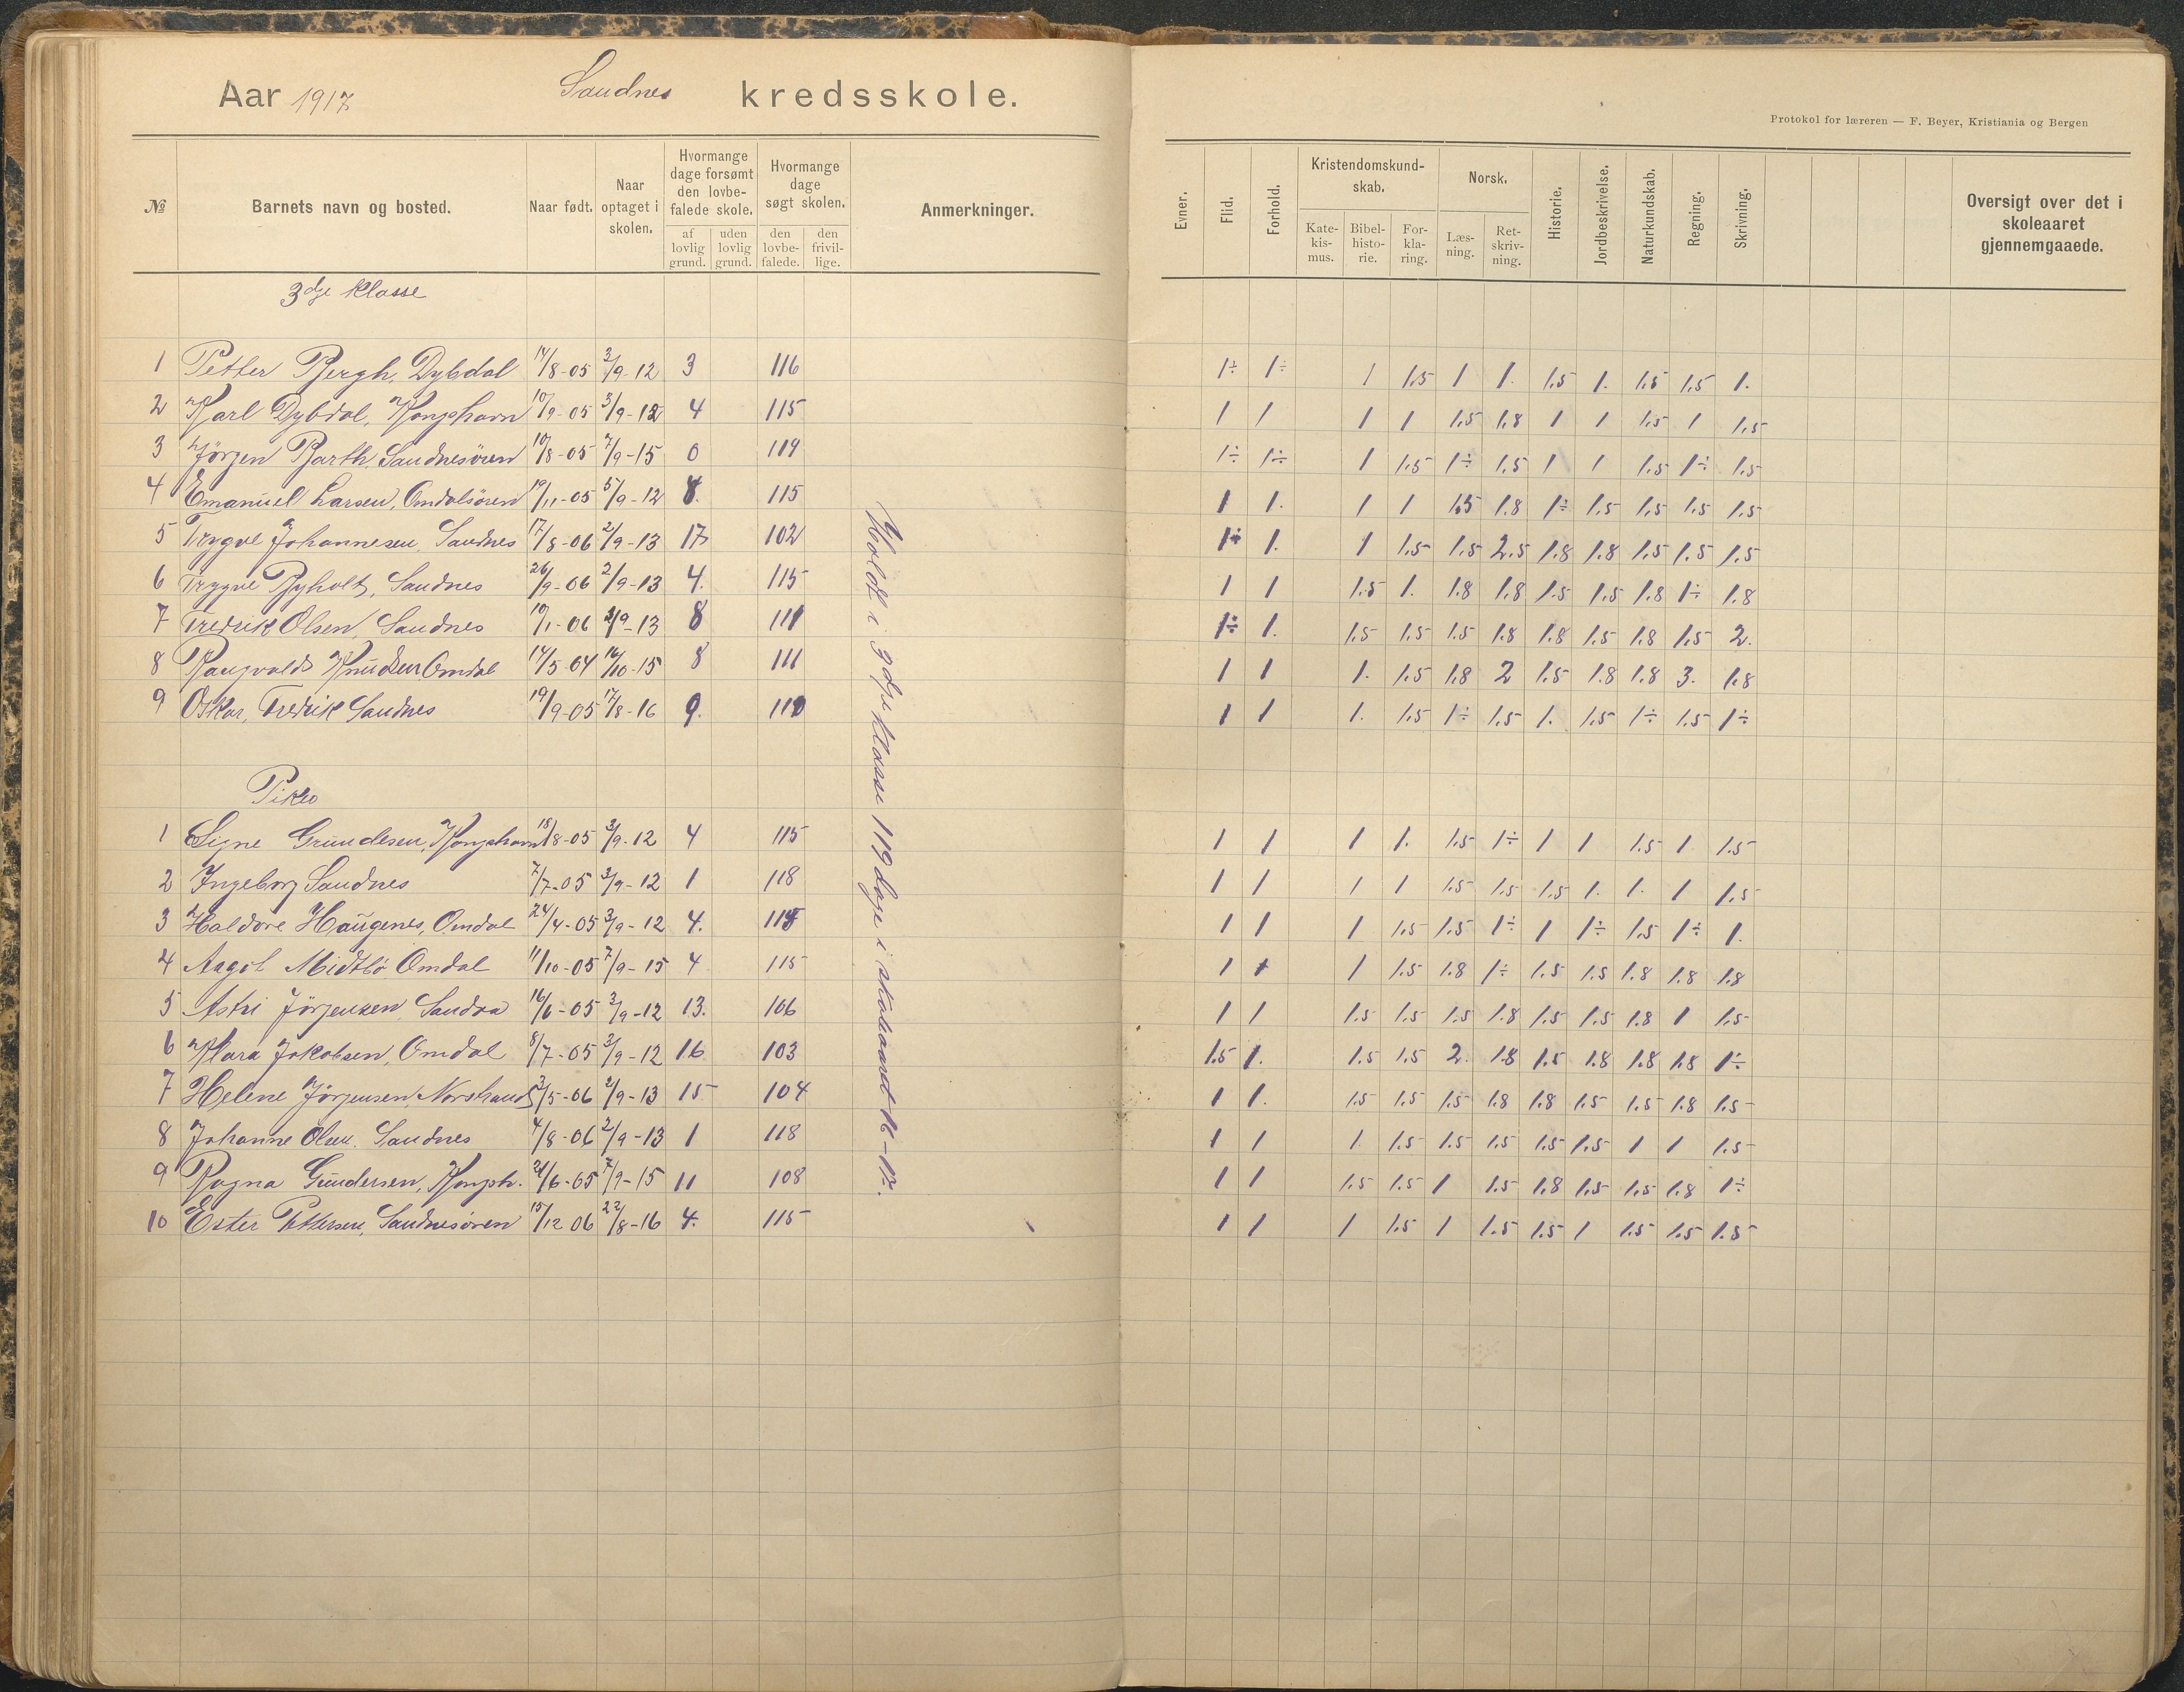 Aar 1917 Sandnes kredsskole.
Protokol for læreren — F. Beyer, Kristiania og Bergen
№ Barnets navn og bosted. Naar født. Naar optaget i skolen. Hvormange dage forsømt den lovbe- falede skole. af lovlig grund. uden lovlig grund. Hvormange dage søgt skolen. den lovbe- falede. den frivil- lige. Anmerkninger.
Evner. Flid. Forhold. Kristendomskund- skab. Kate- kis- mus. Bibel- histo- rie. For- kla- ring. Norsk. Læs- ning. Ret- skriv- ning. Historie. Jordbeskrivelse. Naturkundskab. Regning. Skrivning. Oversigt over det i skoleaaret gjennemgaaede.
3dje Klasse
1 Petter Bergh, Dybdal 14/8-05 3/9-12 3 116 1÷ 1÷ 1 1,5 1 1. 1,5 1. 1,5 1,5 1.
2 Karl Dybdal, Kongshavn 10/9-05 3/9-12 4 115 1 1 1 1 1,5 1,8 1 1 1,5 1 1,5
3 Jörgen Barth, Sandnesören 10/8-05 7/9-15 0 119 1÷ 1÷ 1 1,5 1÷ 1,5 1 1 1,5 1÷ 1,5
4 Emanuel Larsen, Omdalsören 19/11-05 5/9-12 4. 115 1 1. 1 1 1,5 1,8 1÷ 1,5 1,5 1,5 1,5
5 Trygve Johannesen, Sandnes 17/8-06 2/9-13 17 102 1÷ 1. 1 1,5 1,5 2,5 1,8 1,8 1,5 1,5 1,5
6 Trygve Byholt, Sandnes 26/9-06 2/9-13 4. 115 1 1 1,5 1. 1,8 1,8 1,5 1,5 1,8 1÷ 1,8
7 Fredrik Olsen, Sandnes 10/1-06 2/9-13 8 111 1÷ 1. 1,5 1,5 1,5 1,8 1,8 1,5 1,8 1,5 2.
8 Rangvald Knudsen Omdal 14/5-04 16/10-15 8 111 1 1 1. 1,5 1,8 2 1,5 1,8 1,8 3. 1,8
9 Oskar, Fredrik Sandnes 19/9-05 17/8-16 9. 110 1 1 1. 1,5 1÷ 1,5 1. 1,5 1÷ 1,5 1÷
Piker
1 Signe Gundesen, Kongshavn 18/8-05 3/9-12 4 115 1 1 1 1. 1,5 1÷ 1 1 1,5 1 1,5
2 Ingeborg Sandnes 7/7-05 3/9-12 1 118 1 1 1 1 1,5 1,5 1,5 1. 1. 1 1,5
3 Haldore Haugenes, Omdal 24/4-05 3/9-12 4. 115 1 1 1 1,5 1,5 1÷ 1 1÷ 1,5 1÷ 1.
4 Aagot Midtbö Omdal 11/10-05 7/9-15 4 115 1 1 1 1,5 1,8 1÷ 1,5 1,5 1,8 1,8 1,8
5 Astri Jörgensen, Sandåa 16/6-05 3/9-12 13. 106 1 1 1,5 1,5 1,5 1,8 1,5 1,5 1,8 1 1,5
6 Klara Jakobsen, Omdal 8/7-05 3/9-12 16 103 1,5 1. 1,5 1,5 2. 1,8 1,5 1,8 1,8 1,8 1÷
7 Helene Jörgensen, Norshaud 3/5-06 2/9-13 15 104 1 1. 1,5 1,5 1,5 1,8 1,8 1,5 1,5 1,8 1,5
8 Johanne Olsen. Sandnes 4/8-06 2/9-13 1 118 1 1 1. 1,5 1,5 1,5 1,5 1,5 1 1 1,5
9 Ragna Gundersen, Kongsh. 21/6-05 7/9-15 11 108 1 1 1,5 1,5 1 1,5 1,8 1,5 1,5 1,8 1÷
10 Ester Pettersen, Sandnesören 15/12 06 22/8-16 4. 115 1 1 1 1,5 1 1,5 1,5 1 1,5 1,5 1,5
Holdt i 3dje Klasse 119 dage i skoleaaret 16-17.